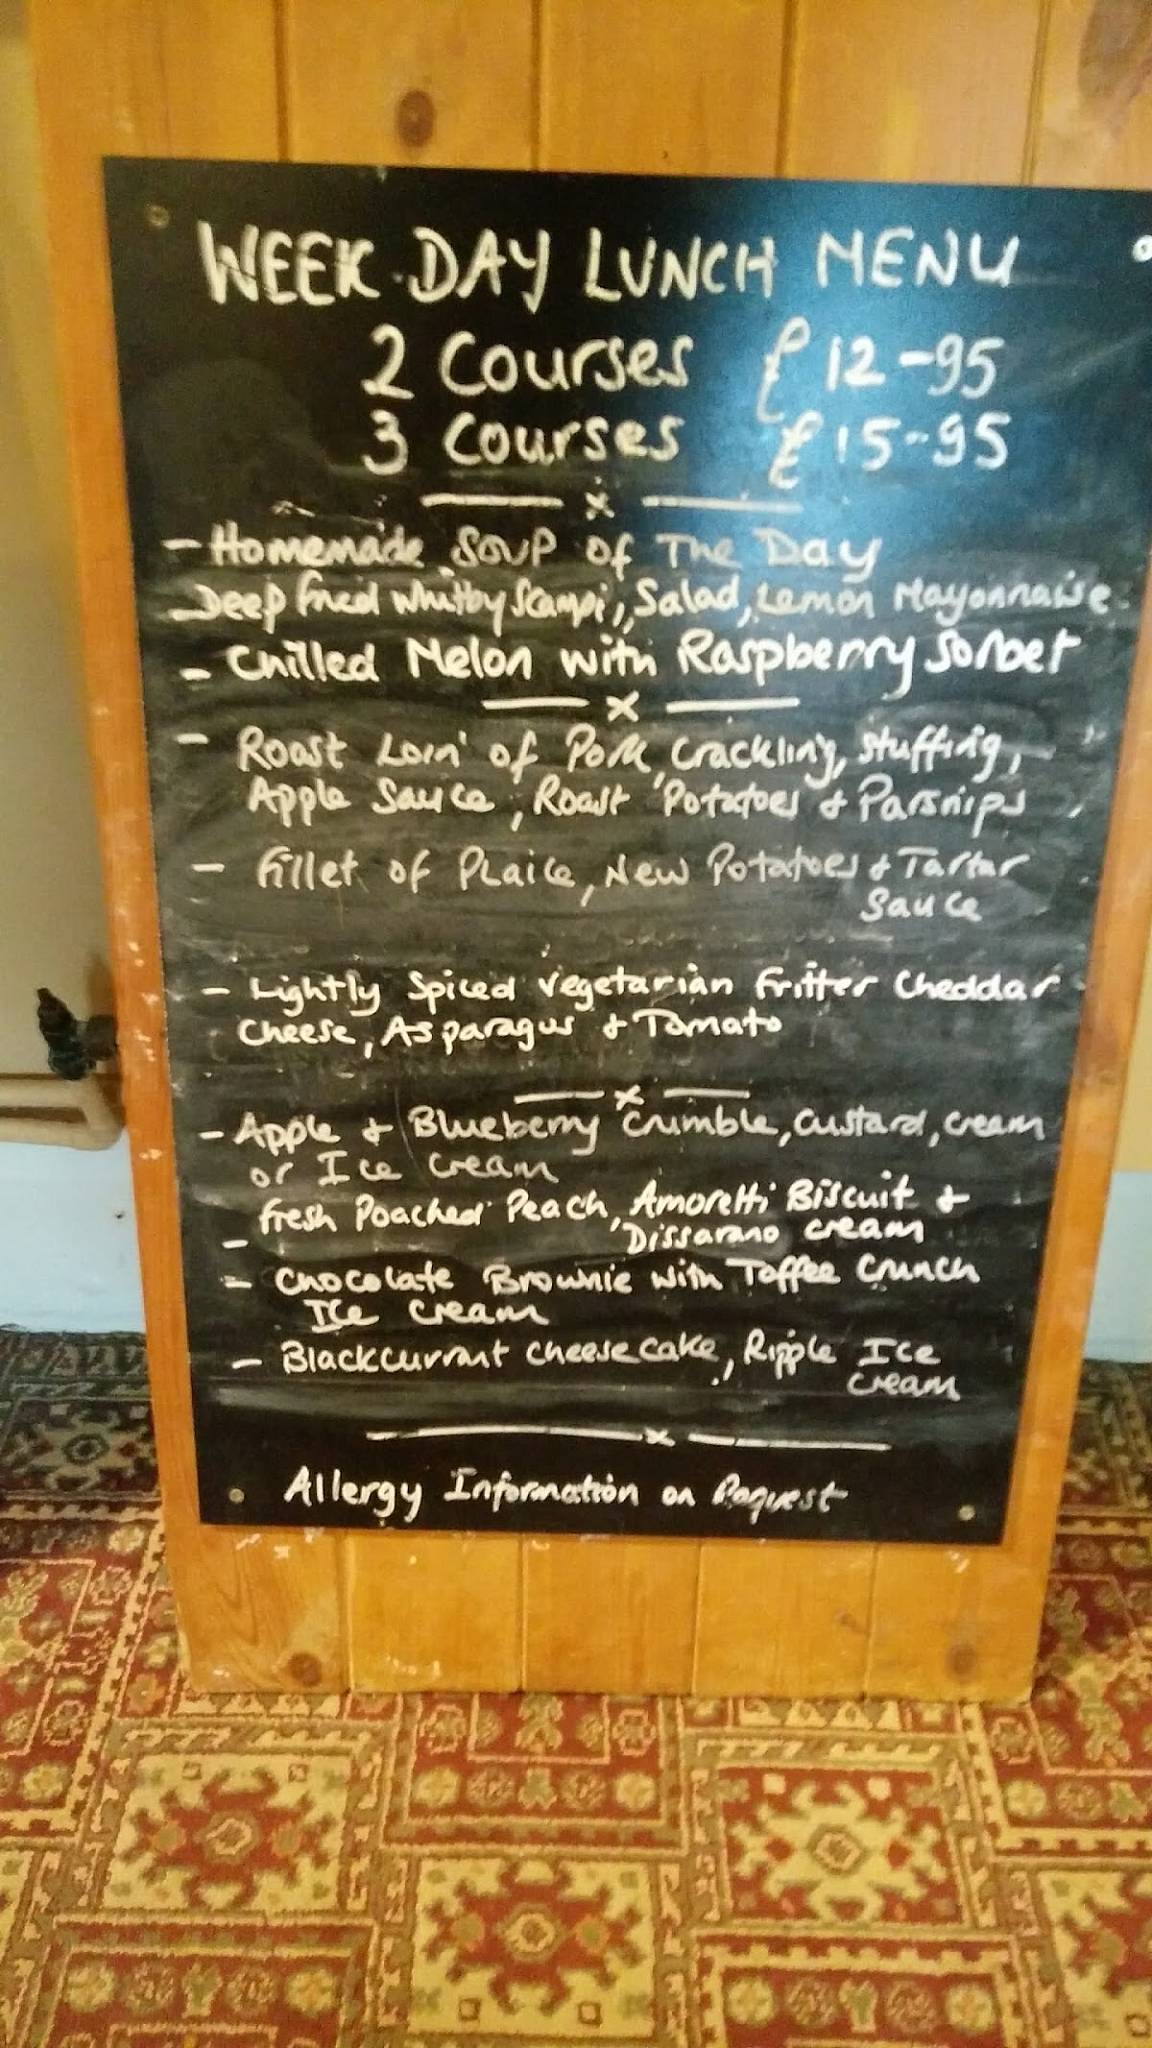 WEEK DAY LUNCH MENU
2 Courses £12-95
3 Courses £15-95
x
- Homemade Soup of The Day
Deep fried Whitby Scampi, Salad, Lemon Mayonnaise
- Chilled Melon with Raspberry Sorbet
x
- Roast Loin of Pork, Crackling, Stuffing,
Apple Sauce, Roast Potatoes + Parsnips
- Fillet of Plaice, New Potatoes + Tartar
Sauce
- Lightly Spiced Vegetarian Fritter Cheddar
Cheese, Asparagus + Tomato
x
- Apple + Blueberry Crumble, Custard, Cream
or Ice Cream
- Fresh Poached Peach, Amoretti Biscuit +
Dissarano Cream
- Chocolate Brownie with Toffee Crunch
Ice Cream
- Blackcurrant Cheesecake, Ripple Ice
Cream
x
Allergy Information on Request